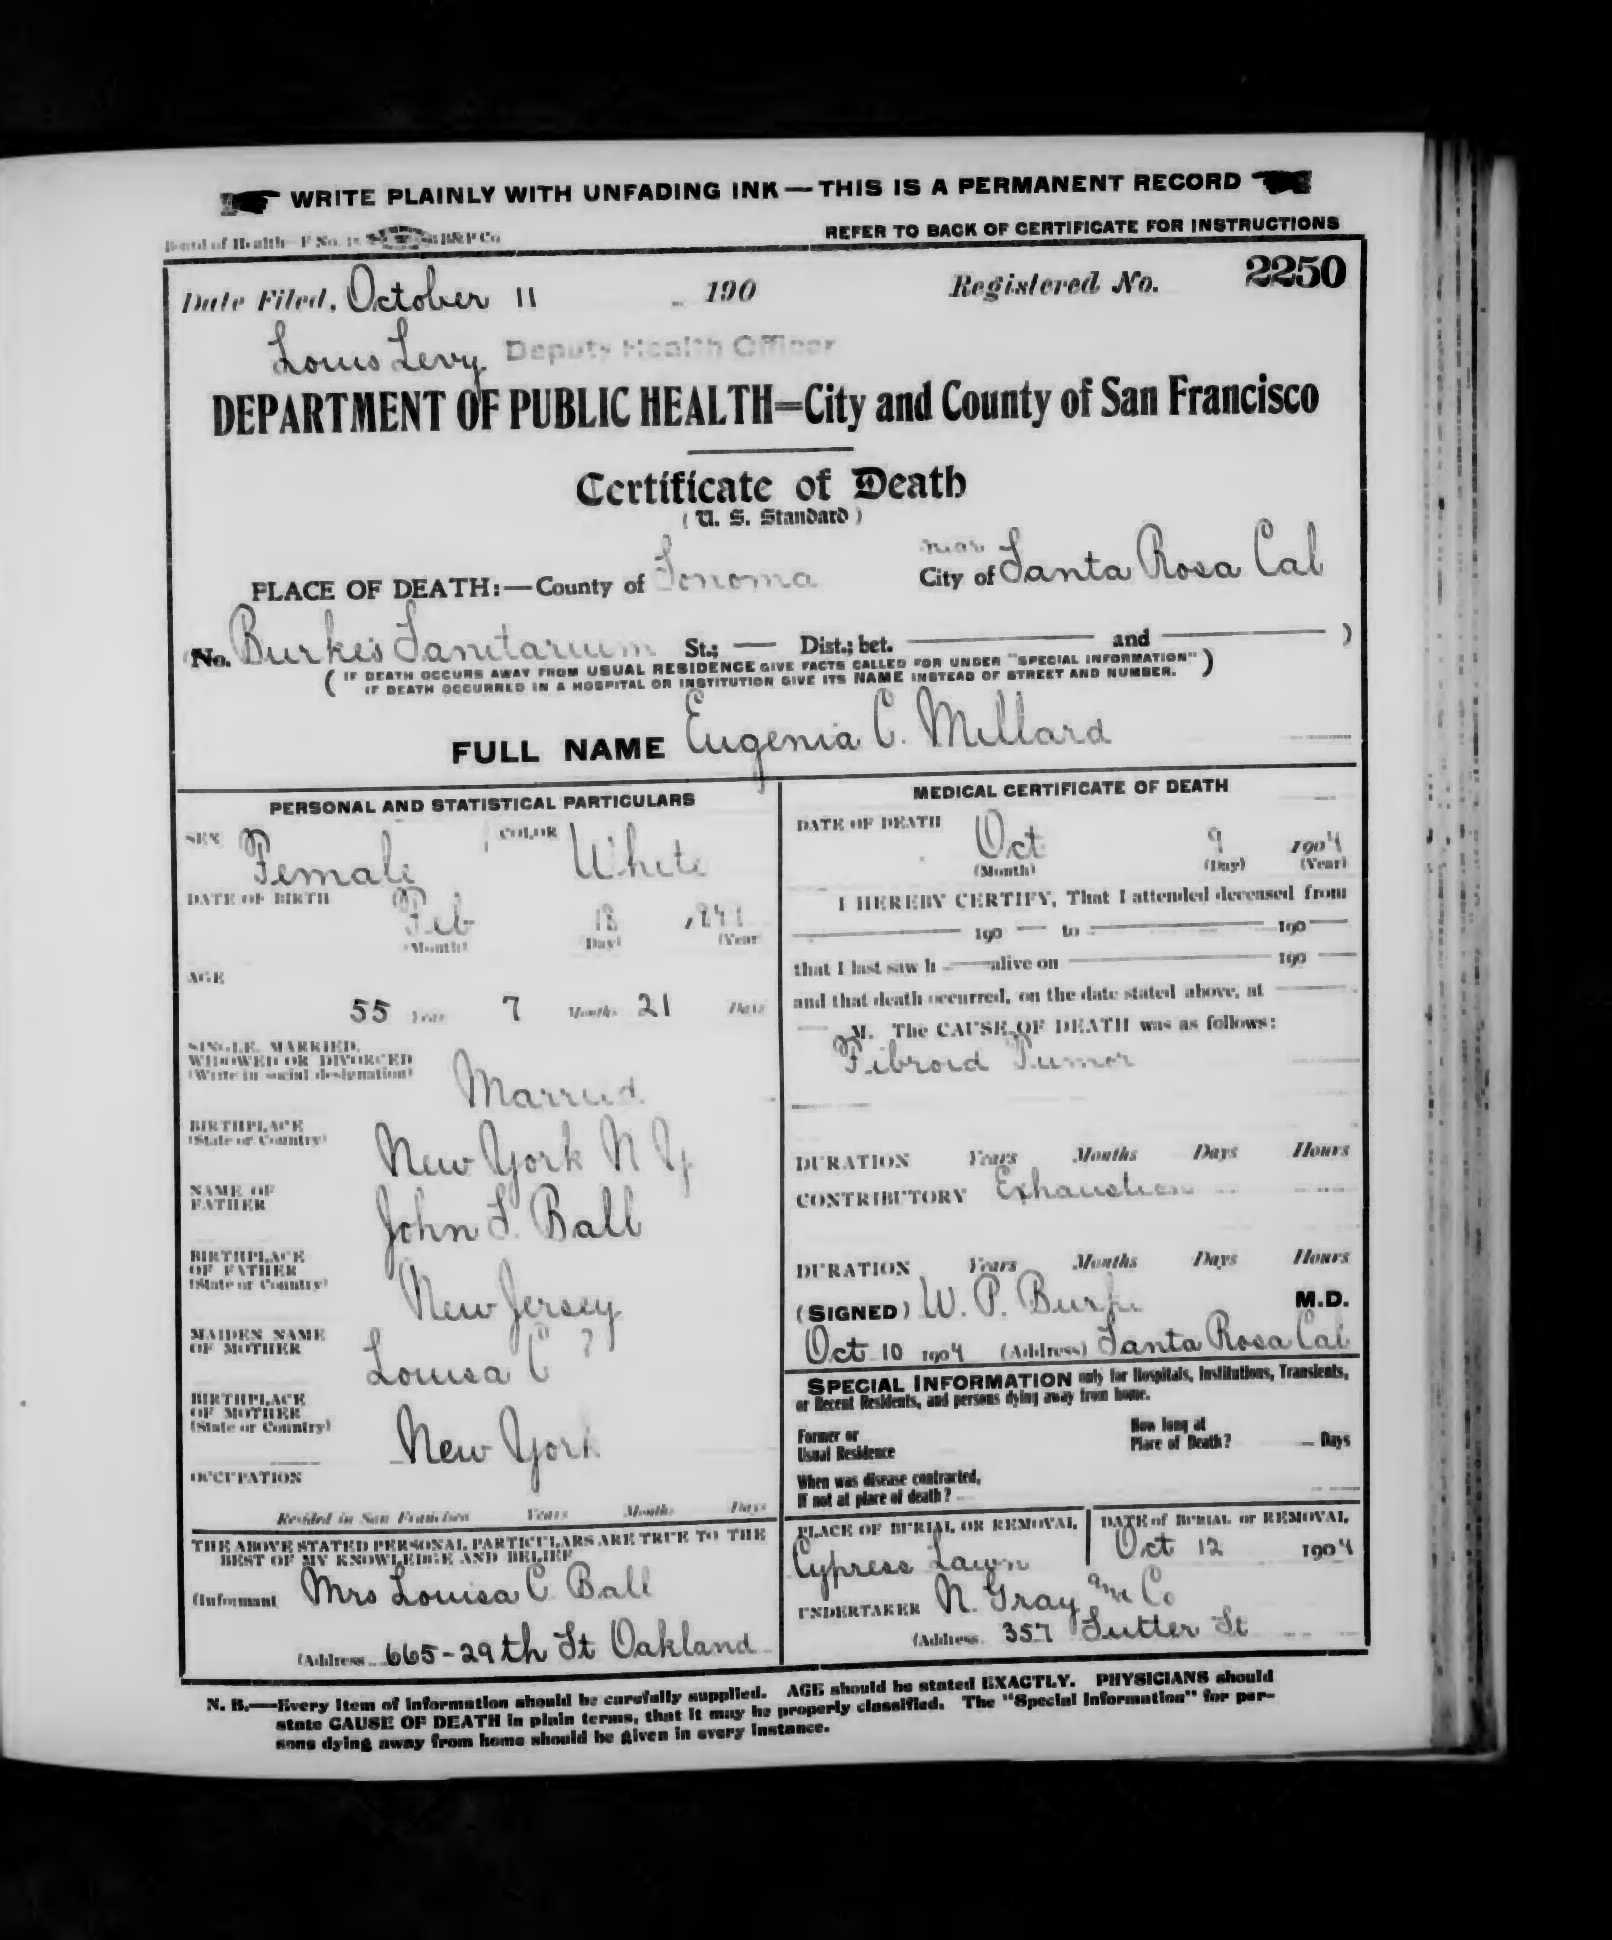 WRITE PLAINLY WITH UNFADING INK — THIS IS A PERMANENT RECORD
Board of Health—F No. 15 B&P Co
REFER TO BACK OF CERTIFICATE FOR INSTRUCTIONS
Date Filed, October 11 190 Registered No. 2250
Louis Levy Deputy Health Officer
DEPARTMENT OF PUBLIC HEALTH=City and County of San Francisco
Certificate of Death
( U. S. Standard )
near
PLACE OF DEATH:—County of Sonoma City of Santa Rosa Cal
(No. Burke's Sanitarium St.; — Dist.; bet. — and — )
( IF DEATH OCCURS AWAY FROM USUAL RESIDENCE GIVE FACTS CALLED FOR UNDER "SPECIAL INFORMATION" )
( IF DEATH OCCURRED IN A HOSPITAL OR INSTITUTION GIVE ITS NAME INSTEAD OF STREET AND NUMBER.
FULL NAME Eugenia C. Millard
PERSONAL AND STATISTICAL PARTICULARS
SEX Female COLOR White
DATE OF BIRTH Feb 18
(Month) (Day) (Year)
AGE
55 Years 7 Months 21 Days
SINGLE, MARRIED,
WIDOWED OR DIVORCED
(Write in social designation) Married
BIRTHPLACE
(State or Country) New York N Y
NAME OF
FATHER John S. Ball
BIRTHPLACE
OF FATHER
(State or Country) New Jersey
MAIDEN NAME
OF MOTHER Louisa C ?
BIRTHPLACE
OF MOTHER
(State or Country) New York
OCCUPATION
Resided in San Francisco Years Months Days
THE ABOVE STATED PERSONAL PARTICULARS ARE TRUE TO THE
BEST OF MY KNOWLEDGE AND BELIEF
(Informant Mrs Louisa C Ball
(Address 665-29th St Oakland
MEDICAL CERTIFICATE OF DEATH
DATE OF DEATH Oct 9 1904
(Month) (Day) (Year)
I HEREBY CERTIFY, That I attended deceased from
— 190 — to — 190 —
that I last saw h — alive on — 190 —
and that death occurred, on the date stated above, at —
— M. The CAUSE OF DEATH was as follows:
Fibroid Tumor
DURATION Years Months Days Hours
CONTRIBUTORY Exhaustion
DURATION Years Months Days Hours
(SIGNED) W. P. Burke M.D.
Oct 10 1904 (Address) Santa Rosa Cal
SPECIAL INFORMATION only for Hospitals, Institutions, Transients,
or Recent Residents, and persons dying away from home.
Former or
Usual Residence
How long at
Place of Death? Days
When was disease contracted,
If not at place of death?
PLACE OF BURIAL OR REMOVAL
Cypress Lawn
DATE of BURIAL or REMOVAL
Oct 12 1904
UNDERTAKER N. Gray and Co
(Address 357 Sutter St
N. B.—Every item of information should be carefully supplied. AGE should be stated EXACTLY. PHYSICIANS should
state CAUSE OF DEATH in plain terms, that it may be properly classified. The "Special Information" for per-
sons dying away from home should be given in every instance.